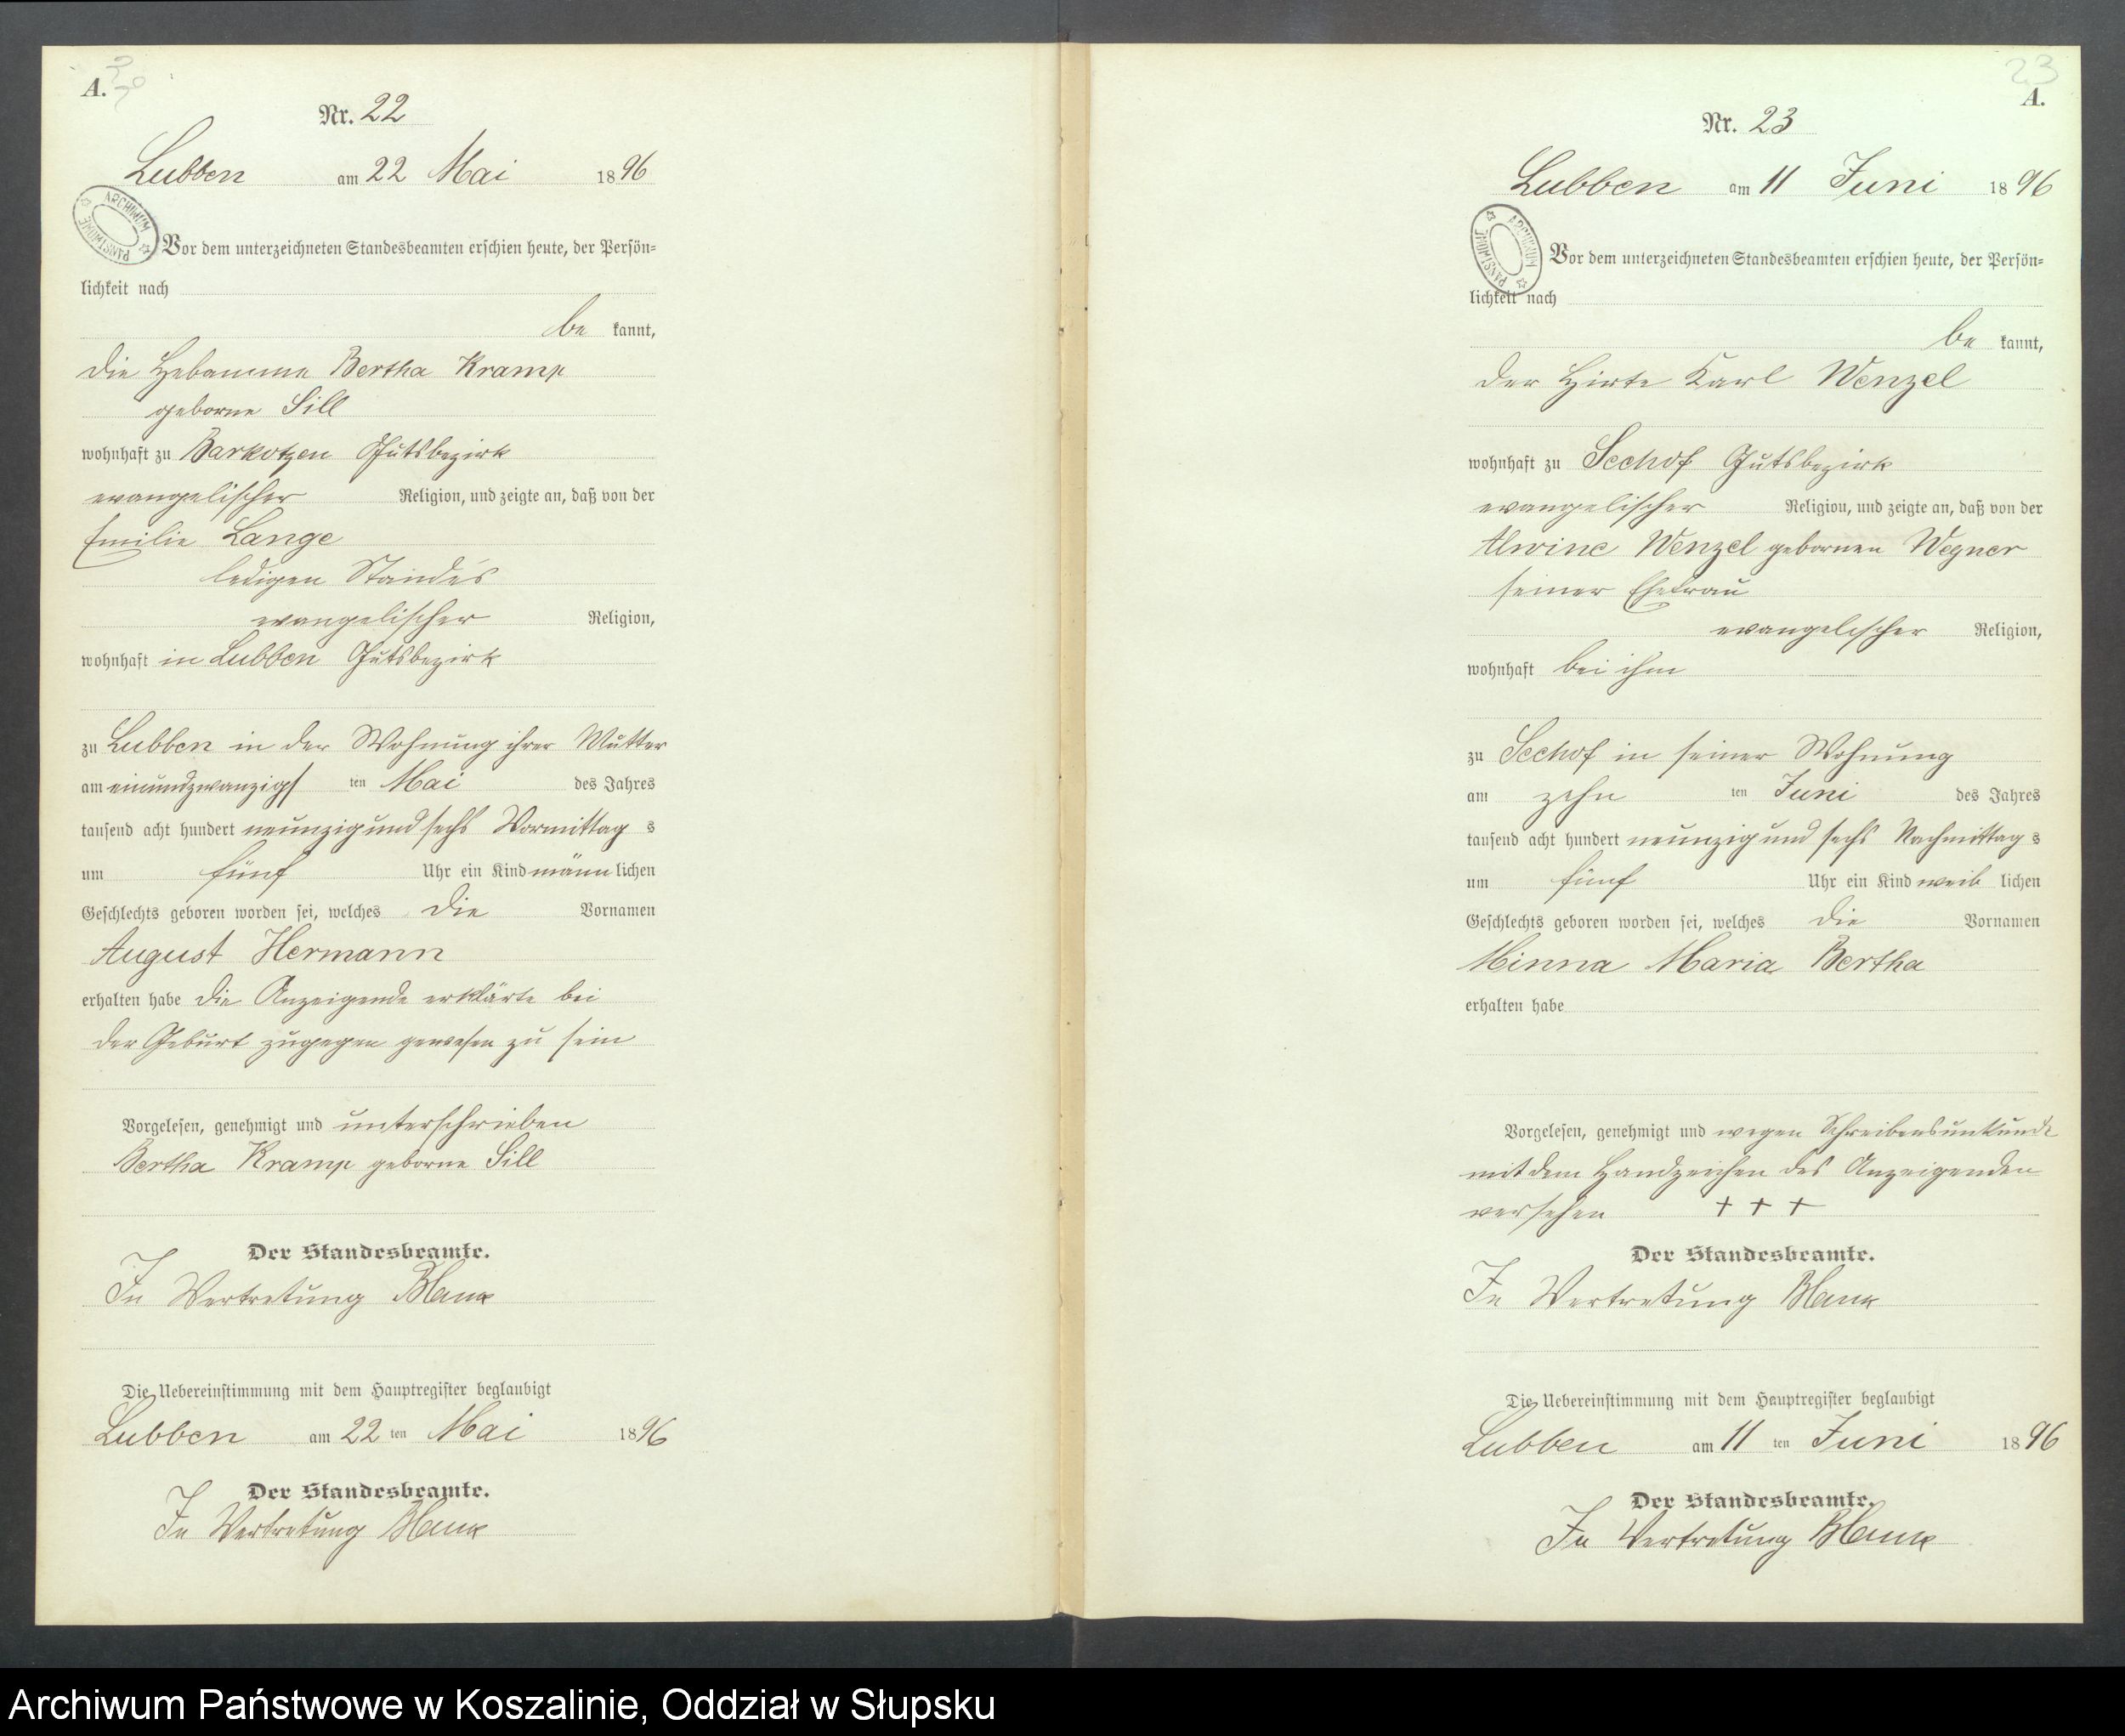 A.
Nr. 22
Lubben am 22 Mai 1896
ARCHIWUM PAŃSTWOWE
Vor dem unterzeichneten Standesbeamten erschien heute, der Persön=
lichkeit nach
be kannt,
die Hebamme Bertha Kramp
geborne Sill
wohnhaft zu Barkotzen Gutsbezirk
evangelischer Religion, und zeigte an, daß von der
Emilie Lange
ledigen Standes
evangelischer Religion,
wohnhaft in Lubben Gutsbezirk
zu Lubben in der Wohnung ihrer Mutter
am einundzwanzigs ten Mai des Jahres
tausend acht hundert neunzig und sechs Vormittag s
um fünf Uhr ein Kind männ lichen
Geschlechts geboren worden sei, welches die Vornamen
August Hermann
erhalten habe die Anzeigende erklärte bei
der Geburt zugegen gewesen zu sein
Vorgelesen, genehmigt und unterschrieben
Bertha Kramp geborne Sill
Der Standesbeamte.
In Vertretung
Die Uebereinstimmung mit dem Hauptregister beglaubigt
Lubben am 22 ten Mai 1896
Der Standesbeamte.
In Vertretung
23
A.
Nr. 23
Lubben am 11 Juni 1896
ARCHIWUM PAŃSTWOWE
Vor dem unterzeichneten Standesbeamten erschien heute, der Persön=
lichkeit nach
be kannt,
der Hirte Karl Wenzel
wohnhaft zu Seehof Gutsbezirk
evangelischer Religion, und zeigte an, daß von der
Alwine Wenzel gebornen Wegner
seiner Ehefrau
evangelischer Religion,
wohnhaft bei ihm
zu Seehof in seiner Wohnung
am zehn ten Juni des Jahres
tausend acht hundert neunzig und sechs Nachmittag s
um fünf Uhr ein Kind weib lichen
Geschlechts geboren worden sei, welches die Vornamen
Minna Maria Bertha
erhalten habe
Vorgelesen, genehmigt und wegen Schreibensunkunde
mit dem Handzeichen des Anzeigenden
versehen + + +
Der Standesbeamte.
In Vertretung
Die Uebereinstimmung mit dem Hauptregister beglaubigt
Lubben am 11 ten Juni 1896
Der Standesbeamte.
In Vertretung
Archiwum Państwowe w Koszalinie, Oddział w Słupsku